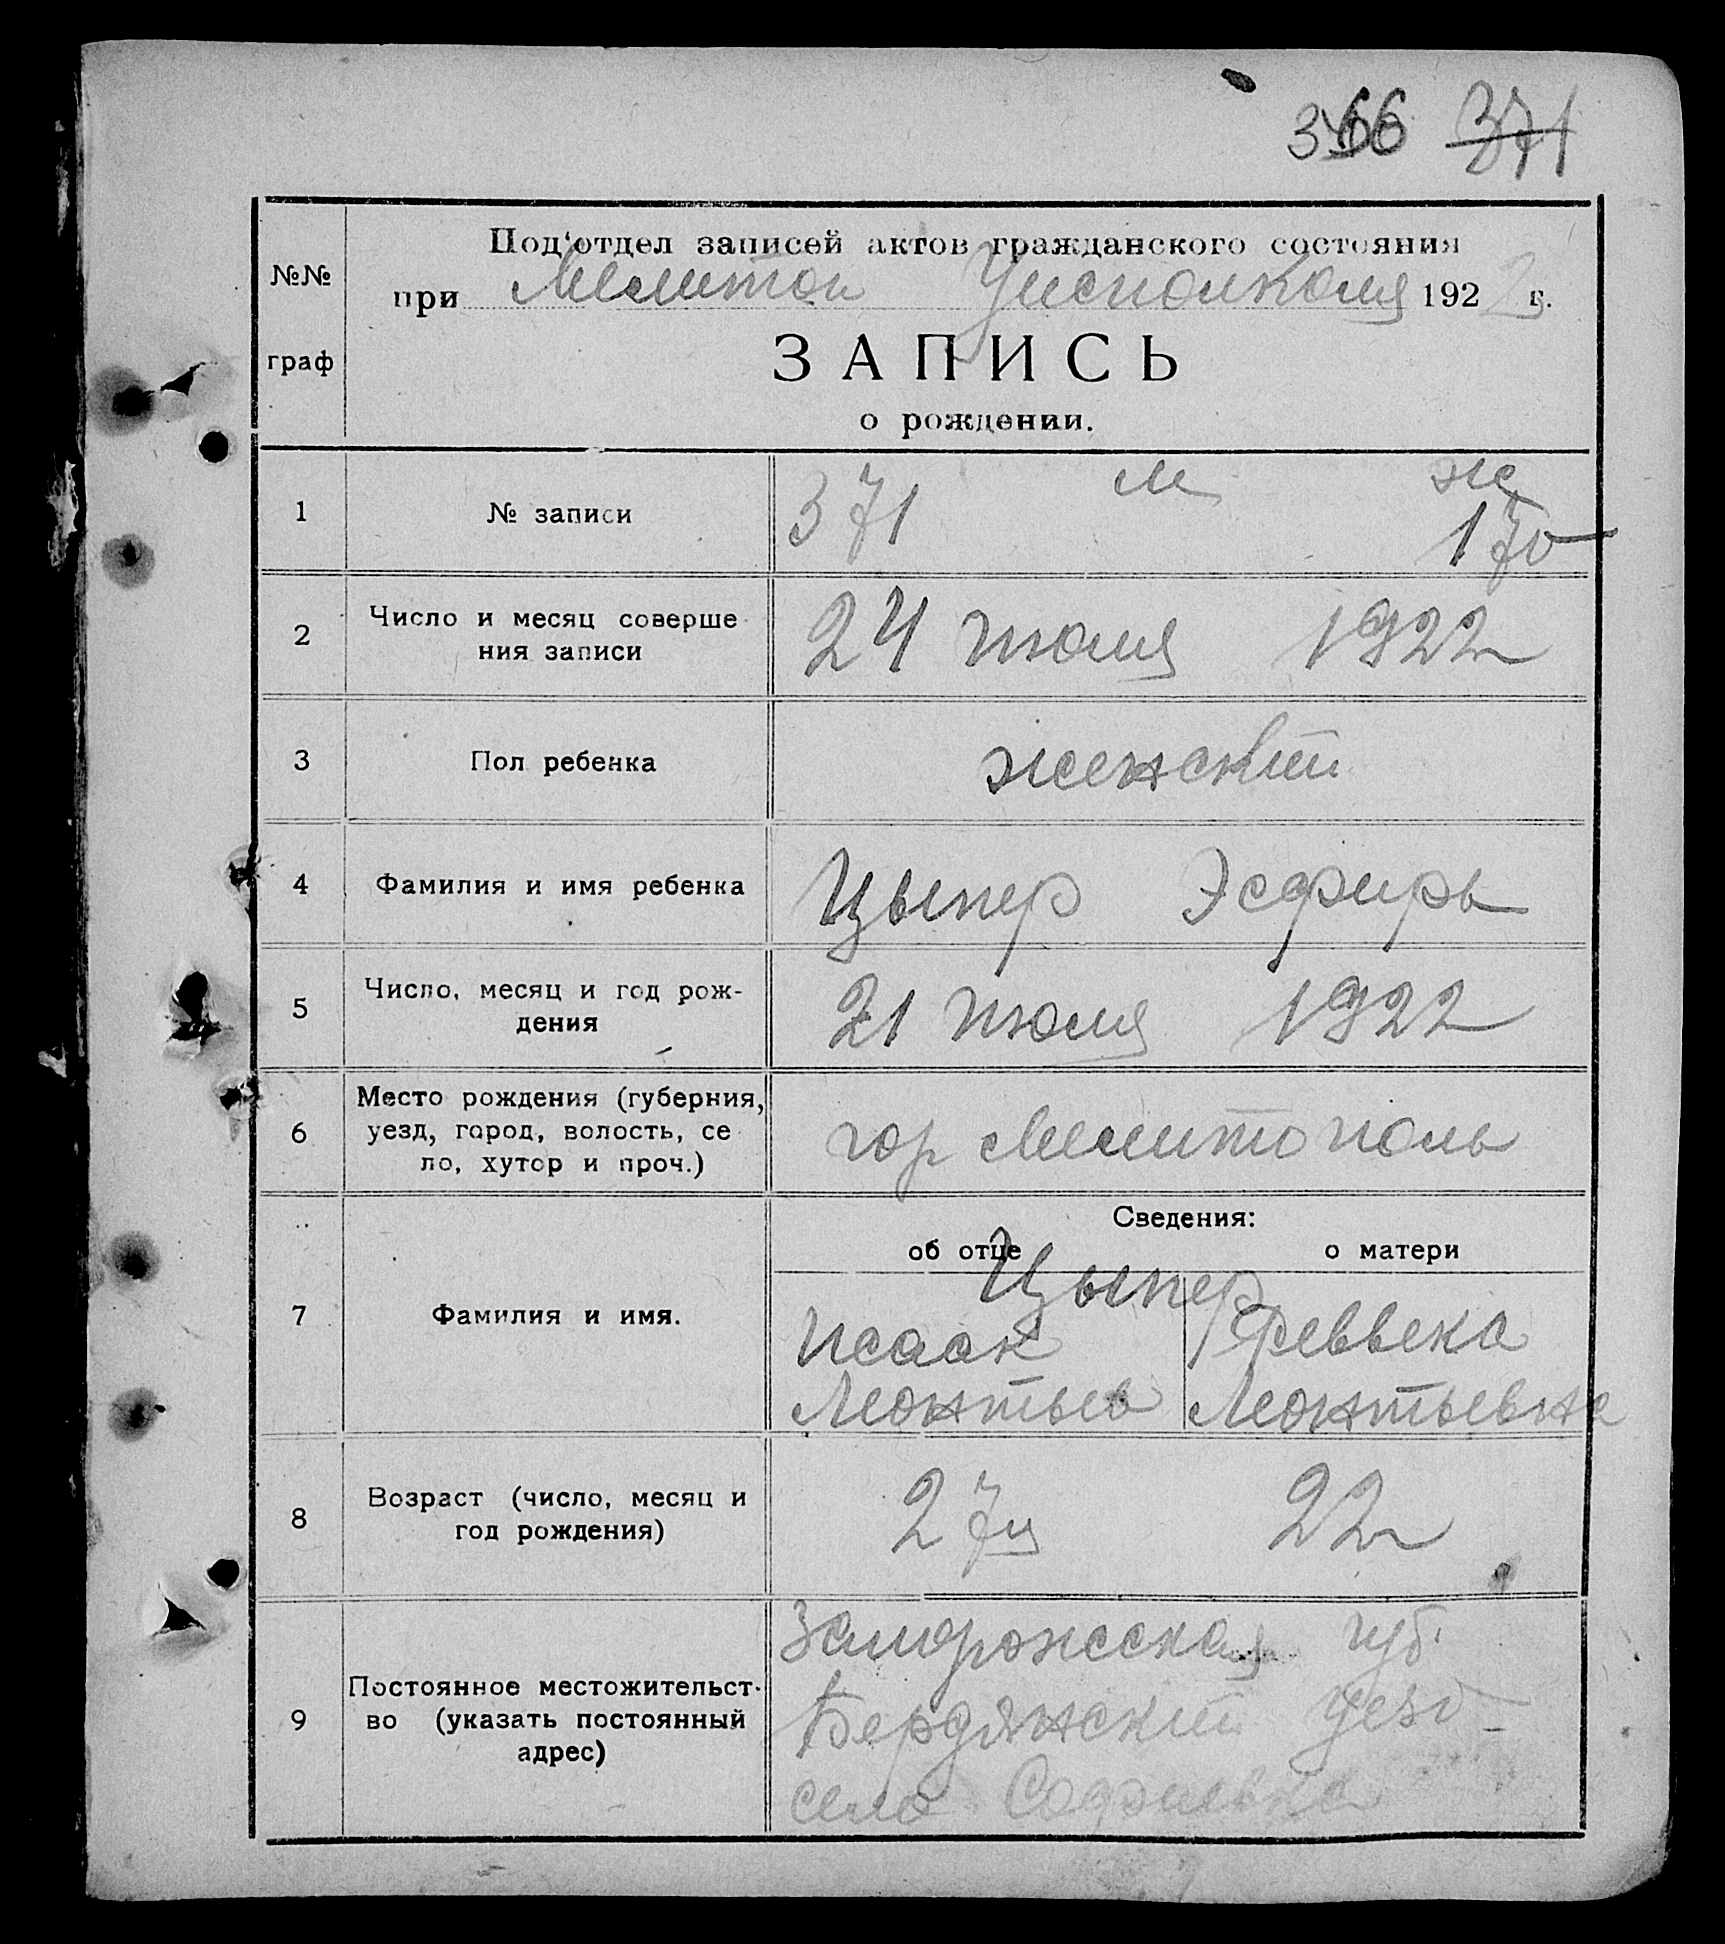 366 371
№№ граф
Под'отдел записей актов гражданского состояния
при Мелитоп Уисполкома 1922 г.
ЗАПИСЬ
о рождении.
м ж
1 № записи 371 170
2 Число и месяц соверше
ния записи 24 июля 1922
3 Пол ребенка женский
4 Фамилия и имя ребенка Цыпер Эсфирь
5 Число, месяц и год рож-
дения 21 июля 1922
6 Место рождения (губерния,
уезд, город, волость, се
ло, хутор и проч.) гор Мелитополь
Сведения:
об отце о матери
Цыпер
7 Фамилия и имя. Исаак Реввека
Леонтьев Леонтьевна
8 Возраст (число, месяц и
год рождения) 27 22
9 Постоянное местожительст-
во (указать постоянный
адрес)
Запорожская губ.
Бердянский уезд
село Софиевка